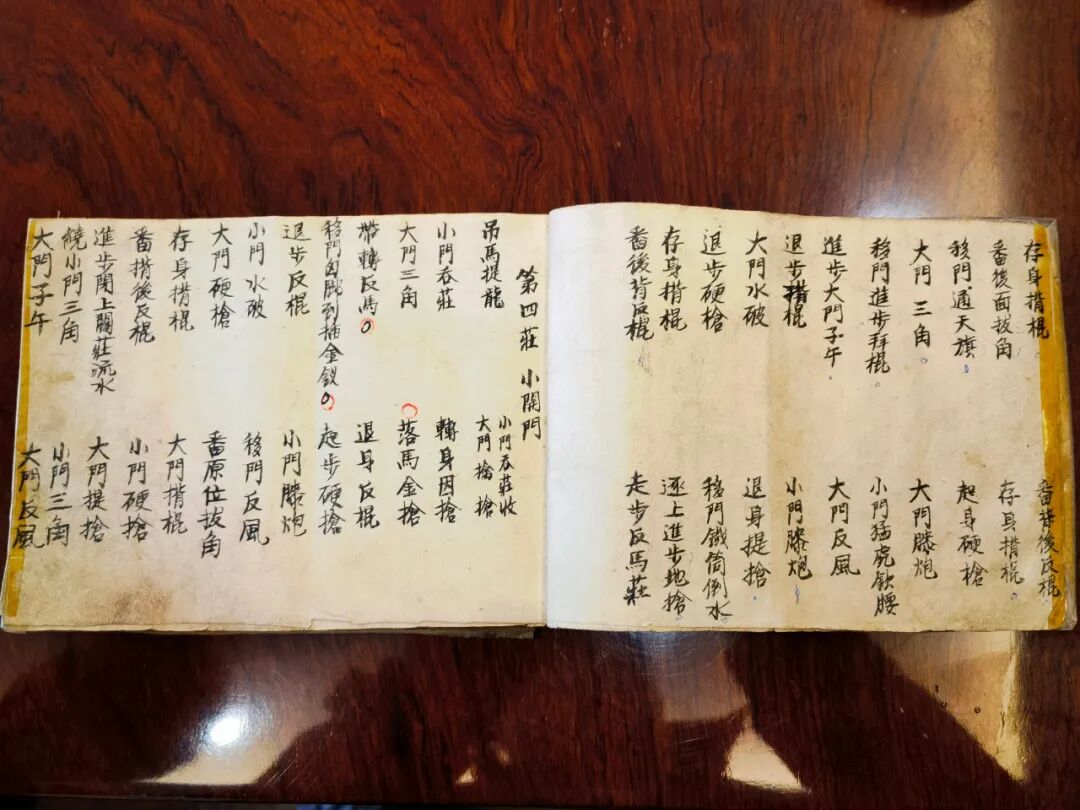 存身揹棍
番揹後反棍
番後面拔角
存身揹棍
移門通天旗
起身硬搶
大門三角
大門膝炮
移門進步拜棍
小門猛虎欽腰
進步大門子午
大門反風
退步揹棍
小門膝炮
大門水破
退身提搶
退步硬搶
移門鐵筒倒水
存身揹棍
逐上進步地搶
番後背反棍
走步反馬莊
第四莊 小開門
吊馬提龍
小門吞莊收
大門搶搶
小門吞莊
轉身因搶
大門三角
落馬金搶
帶轉反馬
退身反棍
移門因到插金釵
起步硬搶
退步反棍
小門膝炮
小門水破
移門反風
大門硬搶
番原位拔角
存身揹棍
大門揹棍
番揹後反棍
小門硬搶
進步閉上關莊流水
大門提搶
饒小門三角
小門三角
大門子午
大門反風